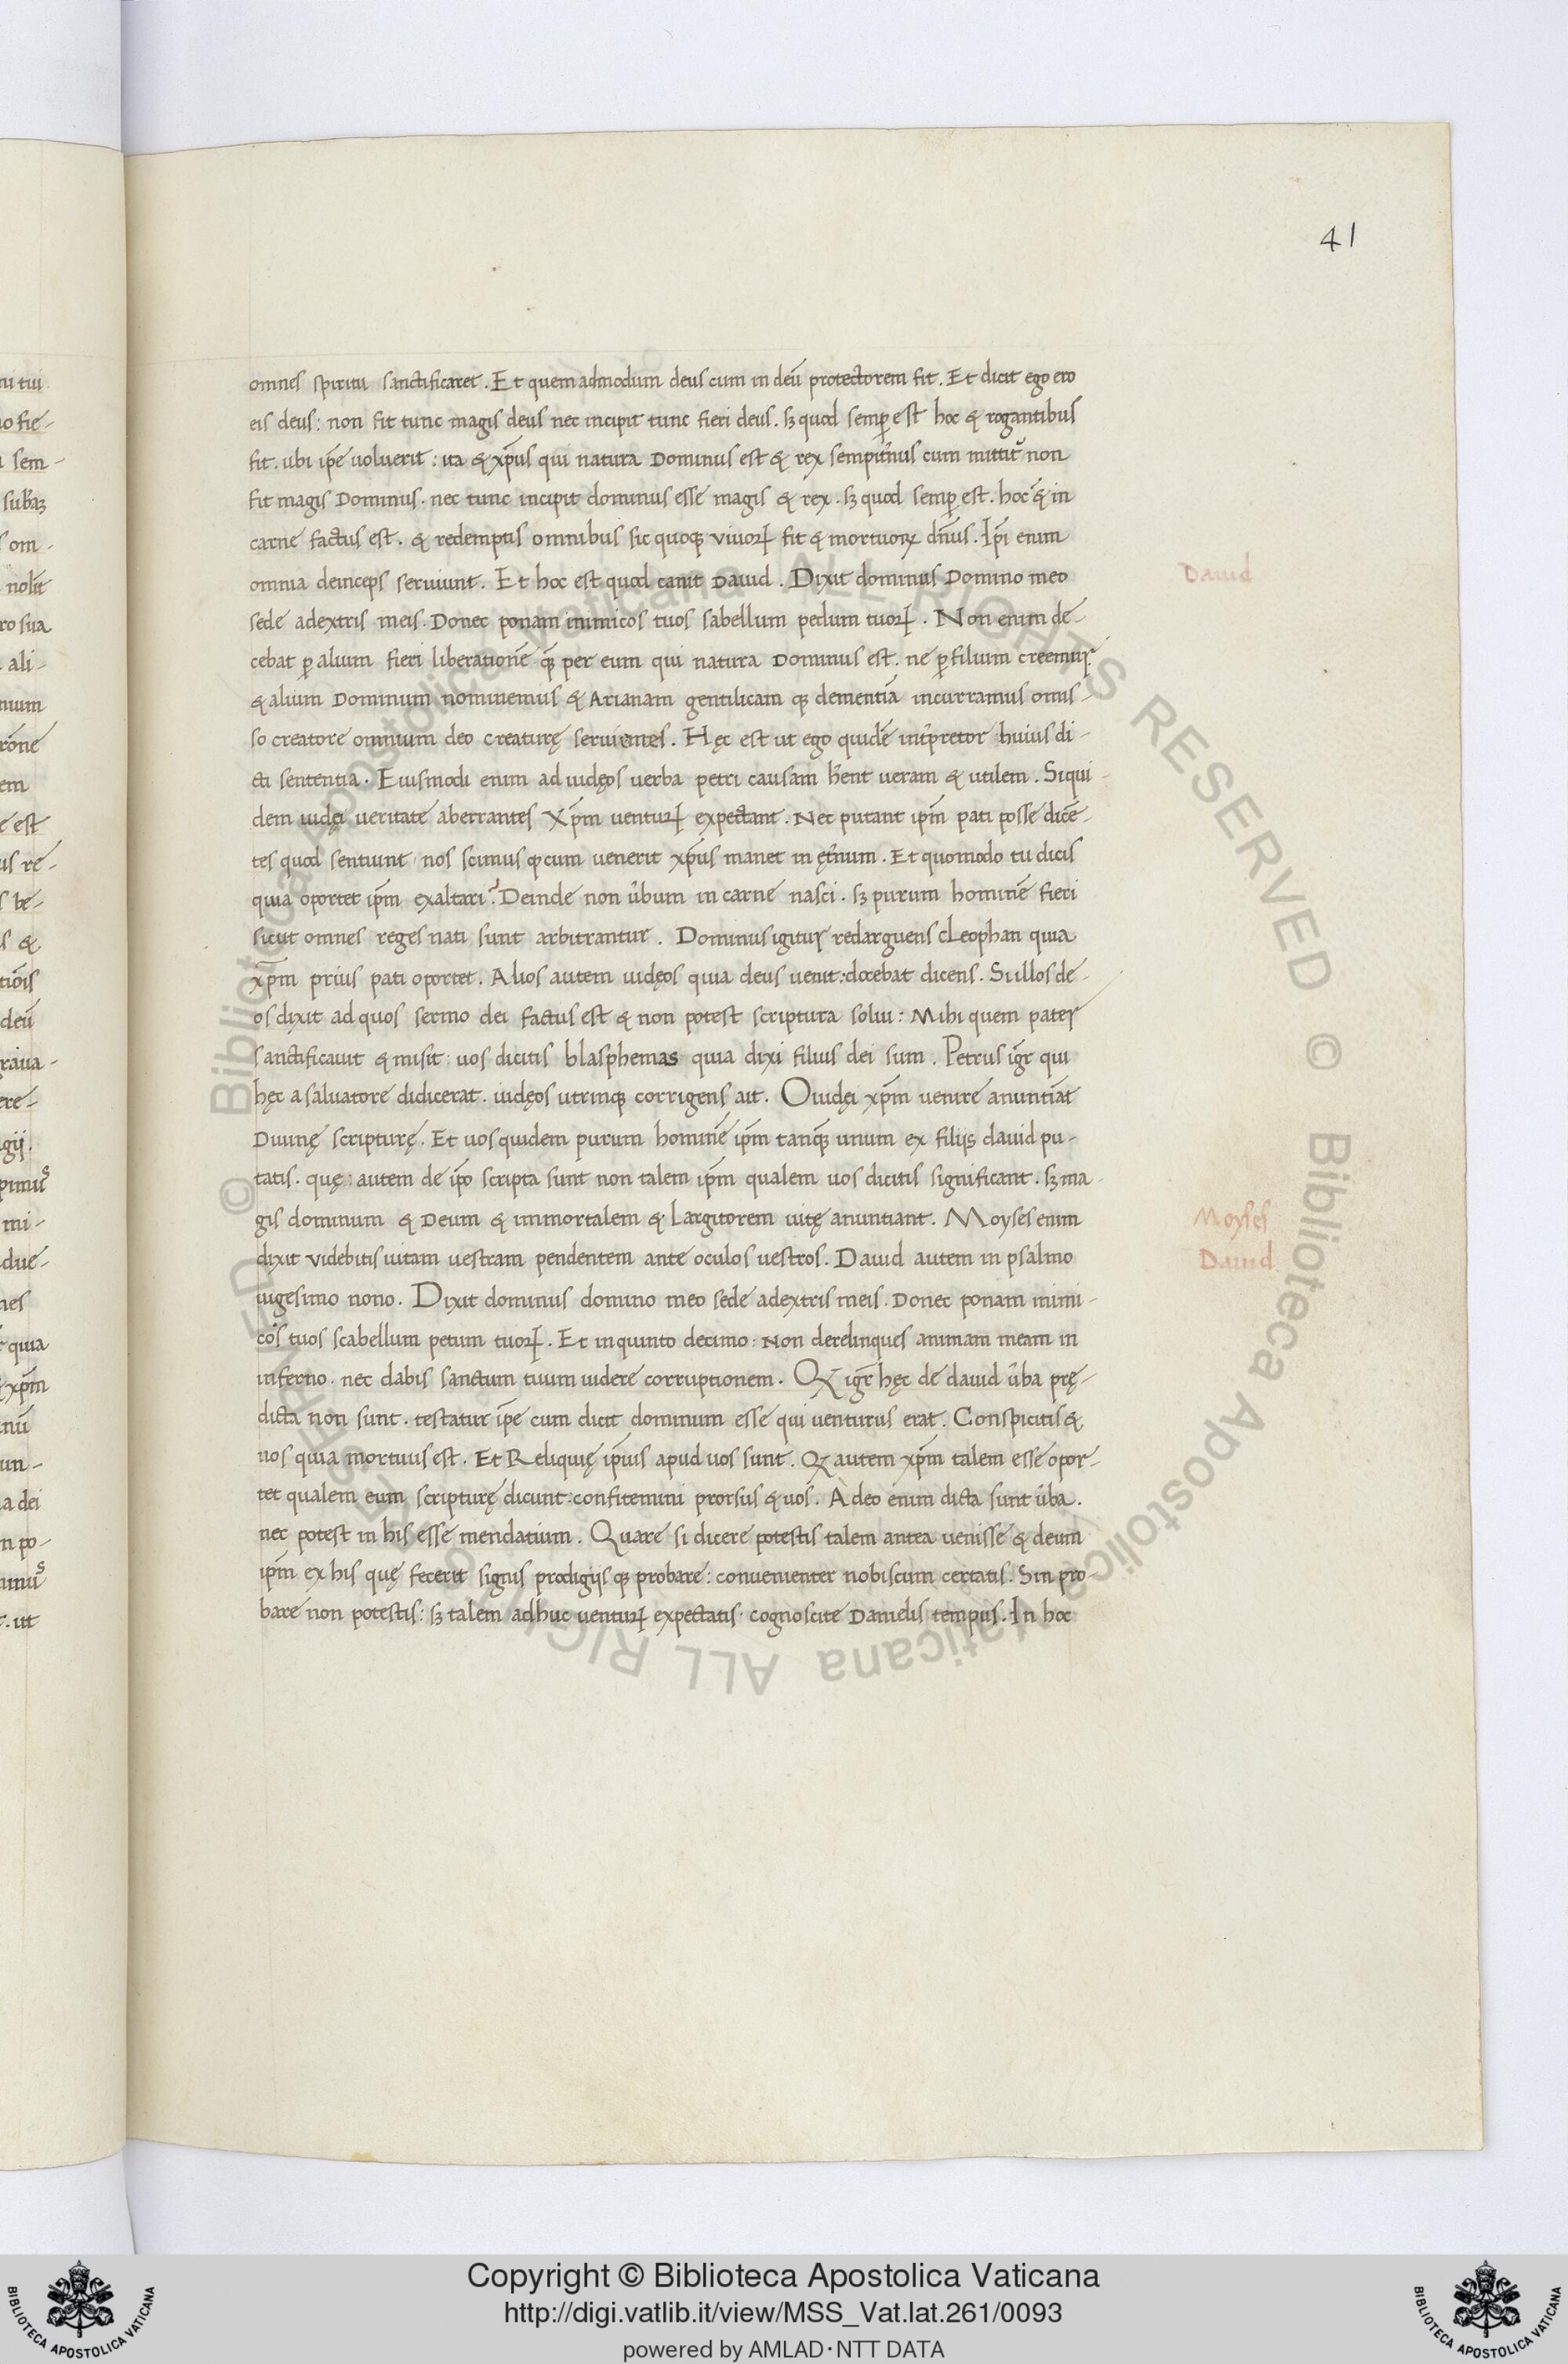 41
omnes spiritu sanctificaret. Et quemadmodum deus cum in deū protectorem fit. Et dicit ego ero
eis deus: non fit tunc magis deus nec incipit tunc fieri deus. sꝫ quod semꝑ est hoc & rogantibus
fit. ubi ip̄e uoluerit: ita & xp̄us qui natura Dominus est & rex sempit̄nus cum mittit᷑ non
fit magis Dominus. nec tunc incipit dominus esse magis & rex. sꝫ quod semꝑ est. hoc & in
carne factus est. & redemptis omnibus sic quoqꝫ viuoꝝ fit & mortuoꝝ dn̄us. Ip̄i enim
omnia deinceps seruiunt. Et hoc est quod canit Dauid. Dixit dominus Domino meo
David
sede adextris meis. Donec ponam inimicos tuos sabellum pedum tuoꝝ. Non enim de-
cebat ꝑ alium fieri liberationē qꝫ̄ per eum qui natura Dominus est. ne ꝑ filium creemur
& alium Dominum nominemus & Arianam gentilicam qꝫ dementiā incurramus omis-
so creatore omnium deo creaturę seruientes. Hęc est ut ego quidē int̄pretor huius di-
cti sententia. Eiusmodi enim ad iudęos uerba petri causam hn̄t ueram & utilem. Siqui-
dem iudęi ueritate aberrantes Xp̄m uentuꝝ expectant. Nec putant ip̄m pati posse dicē-
tes quod sentiunt nos scimus ꝙ cum uenerit xp̄us manet in ęt̄num. Et quomodo tu dicis
quia oportet ip̄m exaltari? Deinde non ūbum in carne nasci. sꝫ purum hominē fieri
sicut omnes reges nati sunt arbitrantur. Dominus igitur redarguens cLeophan quia
xp̄m prius pati oportet. Alios autem iudęos quia deus uenit: docebat dicens. Si illos de-
os dixit ad quos sermo dei factus est & non potest scriptura solui: Mihi quem pater
sanctificauit & misit: uos dicitis blasphemas quia dixi filius dei sum. Petrus igr̄ qui
hęc a saluatore didicerat. iudęos utrinqꝫ corrigens ait. O iudęi xp̄m uenire anuntiāt
Diuinę scripturę. Et uos quidem purum hominē ip̄m tanqꝫ̄ unum ex filijs dauid pu-
tatis. quę: autem de ip̄o scripta sunt non talem ip̄m qualem uos dicitis significant. sꝫ ma
gis dominum & Deum & immortalem & Largitorem uitę anuntiant. Moyses enim
Moyses
dixit videbitis uitam uestram pendentem ante oculos uestros. Dauid autem in psalmo
David
uigesimo nono. Dixit dominus domino meo sede adextris meis. Donec ponam inimi-
cos tuos scabellum petum tuoꝝ. Et in quinto decimo: Non derelinques animam meam in
inferno. nec dabis sanctum tuum uidere corruptionem. Qꝫ igr̄ hęc de dauid ūba prę-
dicta non sunt. testatur ip̄e cum dicit dominum esse qui uenturus erat. Conspicitis &
nos quia mortuus est. Et Reliquię ip̄ius apud uos sunt. Qꝫ autem xp̄m talem esse opor-
tet qualem eum scripturę dicunt: confitemini prorsus & uos. A deo enim dicta sunt ūba.
nec potest in his esse mendatium. Quare si dicere potestis talem antea uenisse & deum
ip̄m ex his quę fecerit signis prodigijs qꝫ probare: conuenienter nobiscum certatis. Sin pro-
bare non potestis: sꝫ talem adhuc uentuꝝ expectatis cognoscite Danielis tempus. In hoc
Copyright © Biblioteca Apostolica Vaticana
http://digi.vatlib.it/view/MSS_Vat.lat.261/0093
powered by AMLAD·NTT DATA